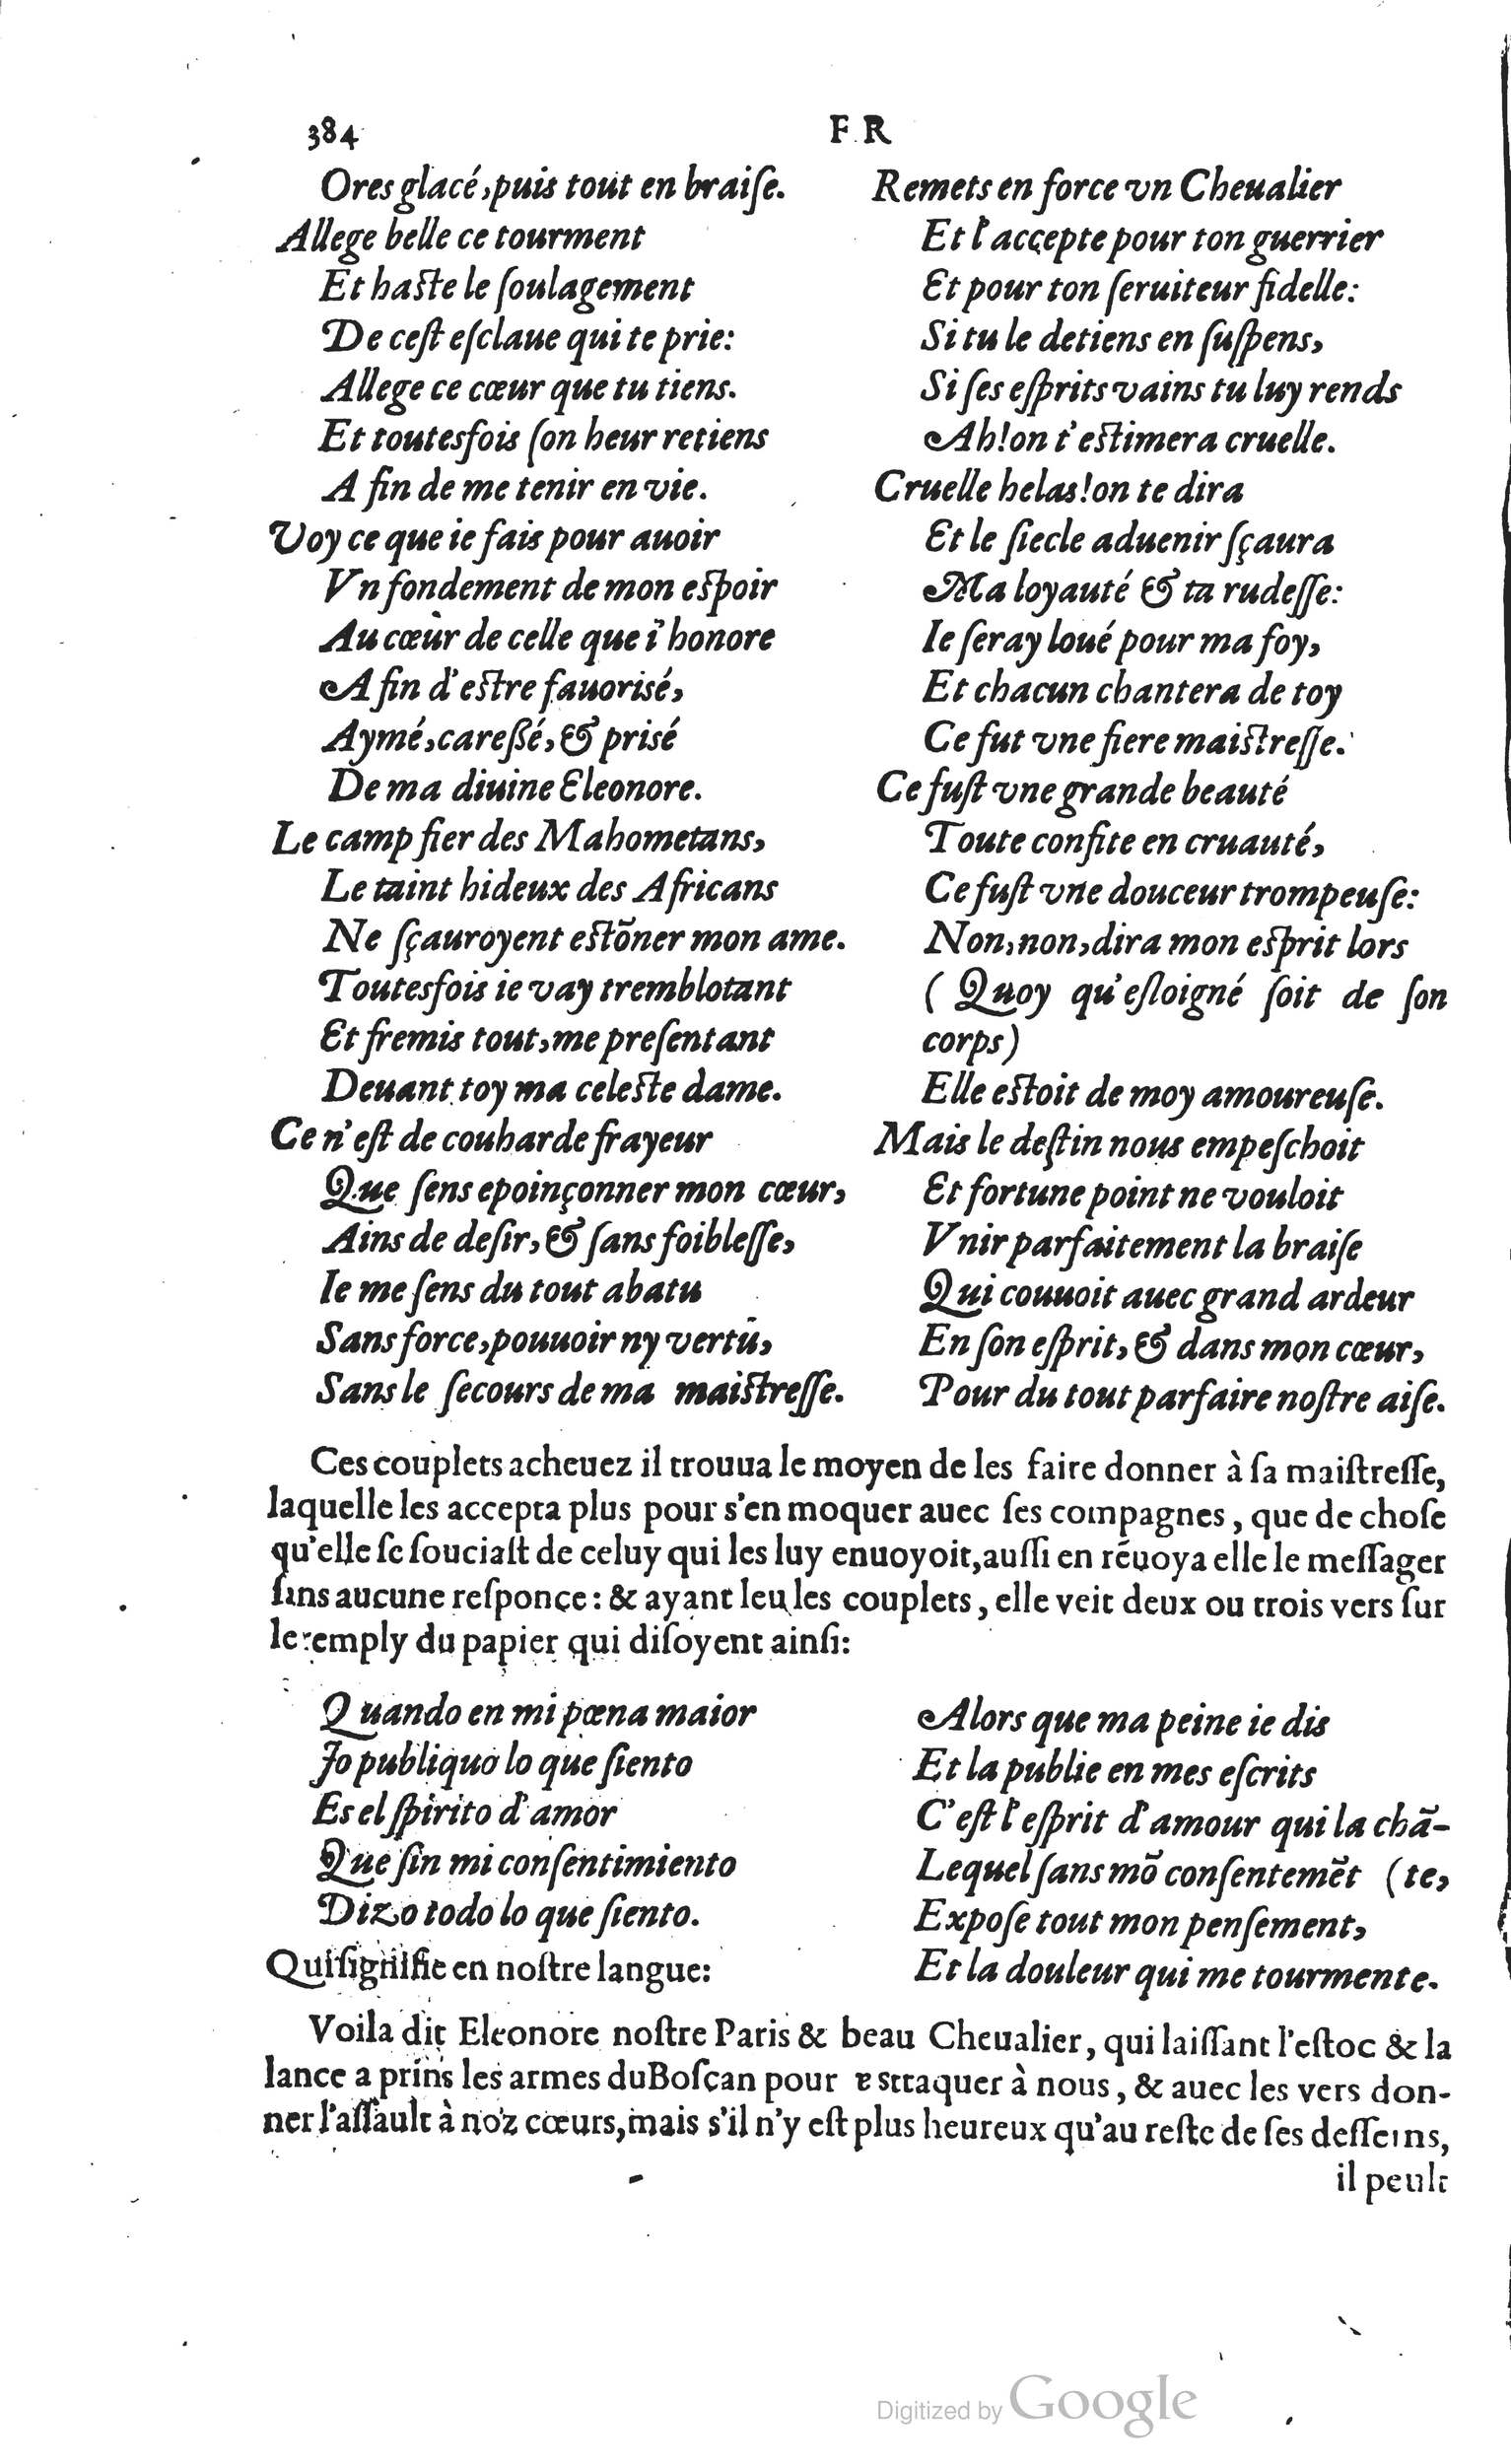 384
F R
Ores glacé, puis tout en braiſe.
Allege belle ce tourment
Et haſte le ſoulagement
De ceſt eſclaue qui te prie:
Allege ce cœur que tu tiens.
Et toutesfois ſon heur retiens
A fin de me tenir en vie.
Voy ce que ie fais pour auoir
Vn fondement de mon eſpoir
Au cœur de celle que i'honore
A fin d'eſtre fauorisé,
Aymé, careßé, & prisé
De ma diuine Eleonore.
Le camp fier des Mahometans,
Le taint hideux des Africans
Ne ſçauroyent eſtõner mon ame.
Toutesfois ie vay tremblotant
Et fremis tout, me preſentant
Deuant toy ma celeſte dame.
Ce n'eſt de couharde frayeur
Que ſens epoinçonner mon cœur,
Ains de deſir, & ſans foibleſſe,
Ie me ſens du tout abatu
Sans force, pouuoir ny vertu,
Sans le ſecours de ma maiſtreſſe.
Remets en force vn Cheualier
Et l'accepte pour ton guerrier
Et pour ton ſeruiteur fidelle:
Si tu le detiens en ſuſpens,
Si ſes eſprits vains tu luy rends
Ah! on t'eſtimera cruelle.
Cruelle helas! on te dira
Et le ſiecle aduenir ſçaura
Ma loyauté & ta rudeſſe:
Ie ſeray loué pour ma foy,
Et chacun chantera de toy
Ce fut vne fiere maiſtreſſe.
Ce fuſt vne grande beauté
Toute confite en cruauté,
Ce fuſt vne douceur trompeuſe:
Non, non, dira mon eſprit lors
( Quoy qu'eſloigné ſoit de ſon
corps)
Elle eſtoit de moy amoureuſe.
Mais le deſtin nous empeſchoit
Et fortune point ne vouloit
Vnir parfaitement la braiſe
Qui couuoit auec grand ardeur
En ſon eſprit, & dans mon cœur,
Pour du tout parfaire noſtre aiſe.
Ces couplets acheuez il trouua le moyen de les faire donner à ſa maiſtreſſe,
laquelle les accepta plus pour s'en moquer auec ſes compagnes, que de choſe
qu'elle ſe ſouciaſt de celuy qui les luy enuoyoit, auſſi en rẽuoya elle le meſſager
ſans aucune reſponce: & ayant leu les couplets, elle veit deux ou trois vers ſur
le remply du papier qui diſoyent ainſi:
Quando en mi pœna maior
Jo publiquo lo que ſiento
Es el ſpirito d'amor
Que ſin mi conſentimiento
Dizo todo lo que ſiento.
Qui ſignifie en noſtre langue:
Alors que ma peine ie dis
Et la publie en mes eſcrits
C'eſt l'eſprit d'amour qui la chã-
Lequel ſans mõ conſentemẽt (te,
Expoſe tout mon penſement,
Et la douleur qui me tourmente.
Voila dit Eleonore noſtre Paris & beau Cheualier, qui laiſſant l'eſtoc & la
lance a prins les armes du Boſcan pour s'attaquer à nous, & auec les vers don-
ner l'aſſault à noz cœurs, mais s'il n'y eſt plus heureux qu'au reſte de ſes deſſeins,
il peult
Digitized by Google